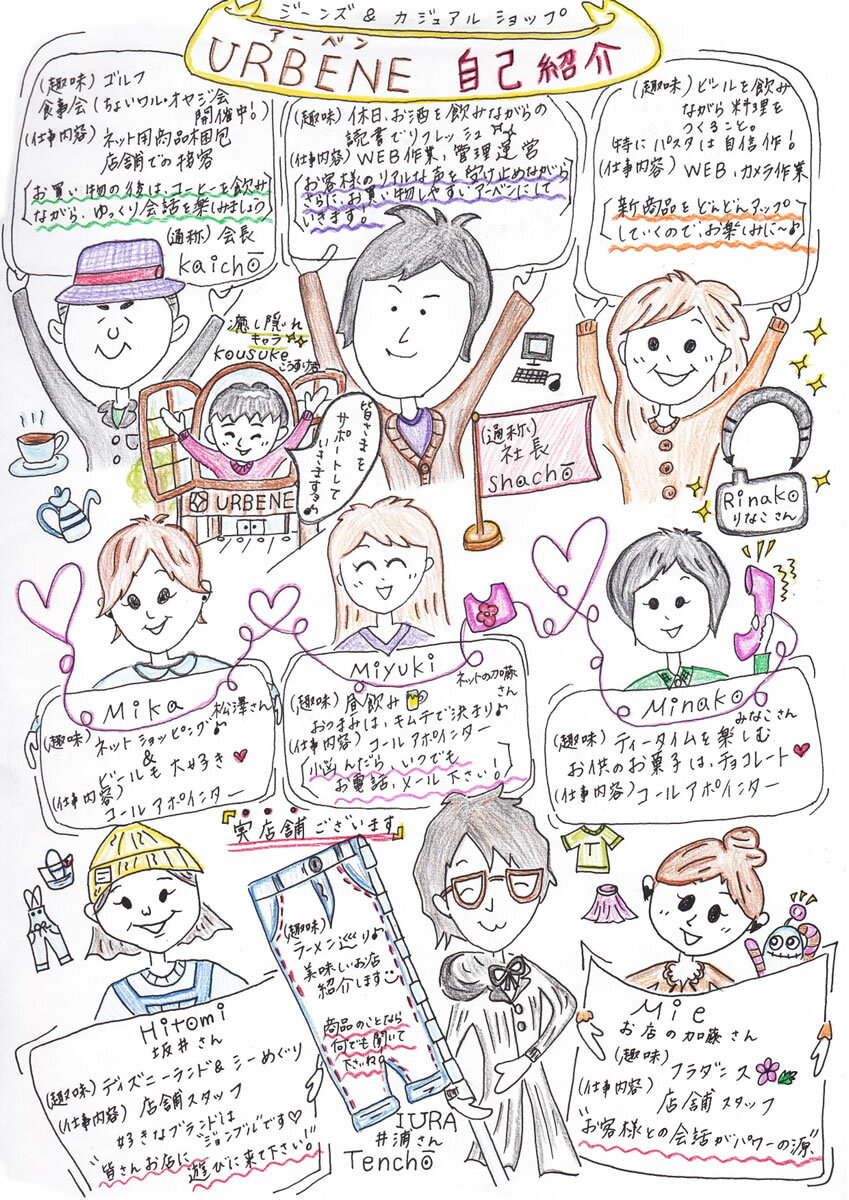 ジーンズ & カジュアル ショップ
アーベン
URBENE 自己紹介
(趣味) ゴルフ
食事会 (ちょいワル・オヤジ会
開催中!)
(仕事内容) ネット用商品梱包
店舗での接客
お買い物の後は、コーヒーを飲み
ながら、ゆっくり会話を楽しみましょう
(通称) 会長
kaichō
(趣味) 休日、お酒を飲みながらの
読書でリフレッシュ
(仕事内容) WEB作業、管理運営
お客様のリアルな声を受け止めながら
さらに、お買い物しやすいアーベンにして
いきます。
(趣味) ビールを飲み
ながら料理を
つくること。
特にパスタは自信作!
(仕事内容) WEB、カメラ作業
新商品をどんどんアップ
していくので、お楽しみに〜♪
癒し隠れ
キャラ
kousuke
こうすけ君
皆さまを
サポートして
いきまする♪
URBENE
(通称)
社長
shachō
Rinako
りなこさん
Mika
松澤さん
(趣味) ネットショッピング♪
&
ビールも大好き♥
(仕事内容)
コールアポインター
Miyuki
ネットの加藤
さん
(趣味) 昼飲み
おつまみは、キムチで決まり♪
(仕事内容) コールアポインター
小悩んだら、いつでも
お電話、メール下さい!
Minako
みなこさん
(趣味) ティータイムを楽しむ
お供のお菓子は、チョコレート♥
(仕事内容) コールアポインター
『実店舗ございます』
Hitomi
坂井さん
(趣味) ディズニーランド&シーめぐり
(仕事内容) 店舗スタッフ
好きなブランドは
"ジョンブル"です♡
"皆さんお店に遊びに来て下さい!"
(趣味)
ラーメン巡り♪
美味しいお店
紹介します
商品のことなら
何でも聞いて
下さいね。
IURA
井浦さん
Tenchō
T
Mie
お店の加藤さん
(趣味)
フラダンス
(仕事内容)
店舗スタッフ
"お客様との会話がパワーの源"